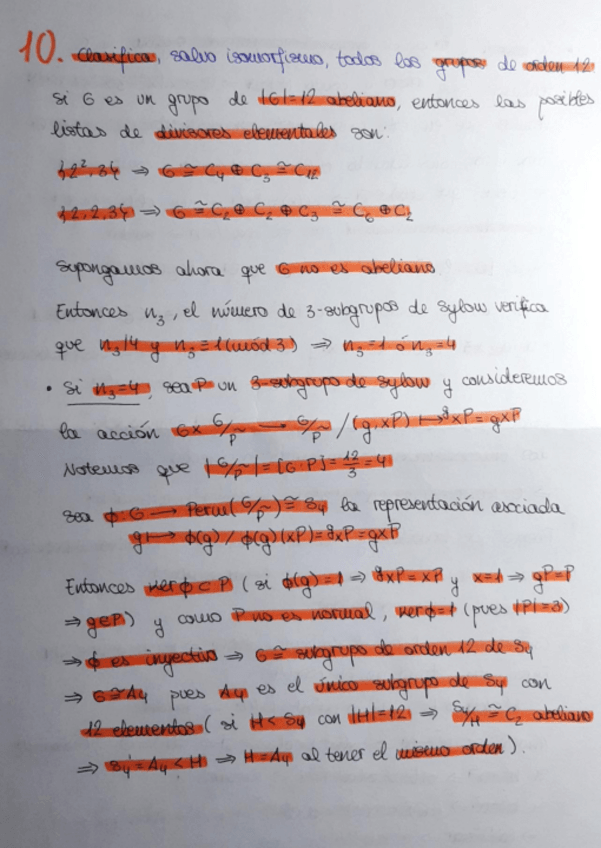 10. Clasifica, salvo isomorfismo, todos los grupos de orden 12
Si G es un grupo de |G|=12 abeliano, entonces las posibles
listas de divisores elementales son:
{2², 3} ⇒ G ≅ C₄ ⊕ C₃ ≅ C₁₂
{2, 2, 3} ⇒ G ≅ C₂ ⊕ C₂ ⊕ C₃ ≅ C₆ ⊕ C₂
Supongamos ahora que G no es abeliano
Entonces n₃, el número de 3-subgrupos de Sylow verifica
que n₃|4 y n₃ ≡ 1 (mód 3) ⇒ n₃=1 ó n₃=4
• Si n₃=4, sea P un 3-subgrupo de Sylow y consideremos
la acción G× G/P → G/P / (g, xP) ↦ ᵍxP = gxP
Notemos que |G/P| = [G:P] = 12/3 = 4
Sea ϕ: G → Perm(G/P) ≅ S₄ la representación asociada
g ↦ ϕ(g) / ϕ(g)(xP) = ᵍxP = gxP
Entonces kerϕ ⊂ P (si ϕ(g)=1 ⇒ ᵍxP = xP y x=1 ⇒ gP=P
⇒ g∈P) y como P no es normal, kerϕ=1 (pues |P|=3)
⇒ ϕ es inyectiva ⇒ G ≅ subgrupo de orden 12 de S₄
⇒ G≅A₄ pues A₄ es el único subgrupo de S₄ con
12 elementos (si H<S₄ con |H|=12 ⇒ S₄/H ≅ C₂ abeliano
⇒ S₄' = A₄ < H ⇒ H=A₄ al tener el mismo orden).